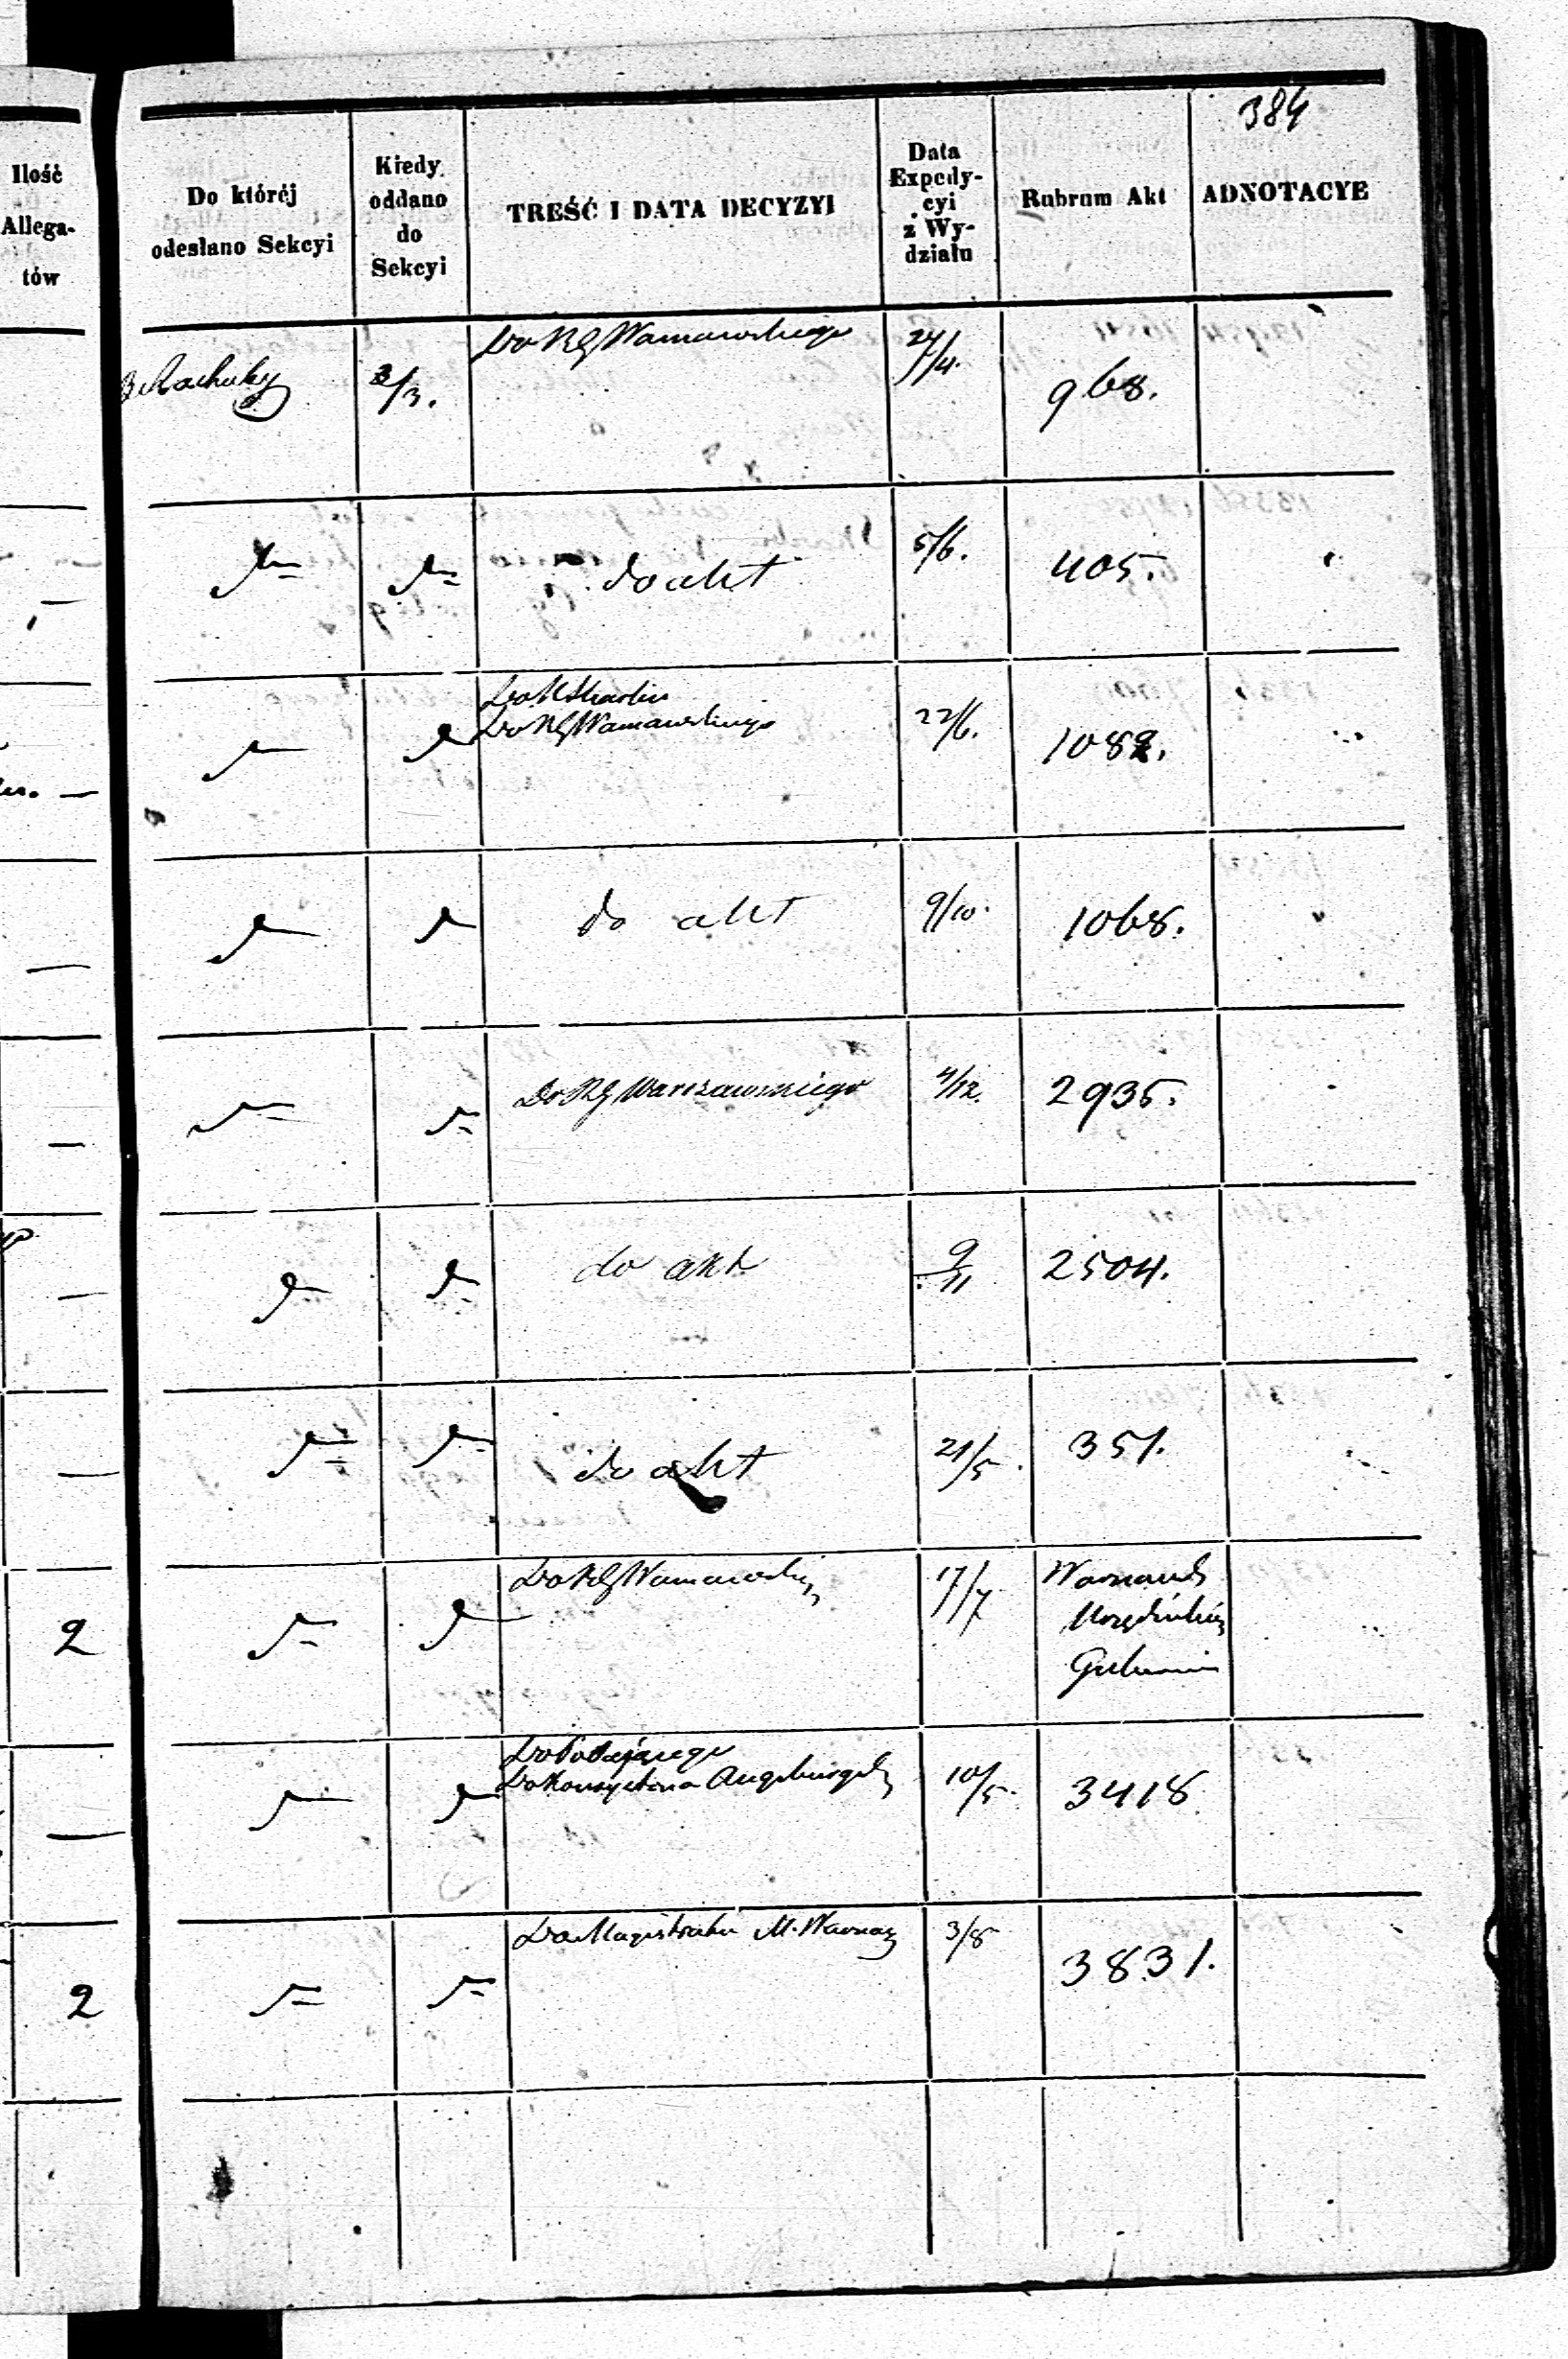 384
Ilość
Allega-
tów
Do któréj
odesłano Sekcyi
Kiedy
oddano
do
Sekcyi
TREŚĆ I DATA DECYZYI
Data
Expedy-
cyi
z Wy-
działu
Rubrum Akt
ADNOTACYE
3/3.
Do RG Warszawskiego
24/4.
968.
do akt
5/6.
405.
Do RG Warszawskiego
22/6.
1082.
do akt
9/10.
1068.
Do RG Warszawskiego
4/12.
2935.
do akt
9/11
2504.
do akt
21/5.
351.
2
Do RG Warszawskieg
17/7
Gubernii
Do Podającego
Do Konsystorza Augsburgsk
10/5.
3418
2
Do Magistratu M. Warszawy
3/8
3831.